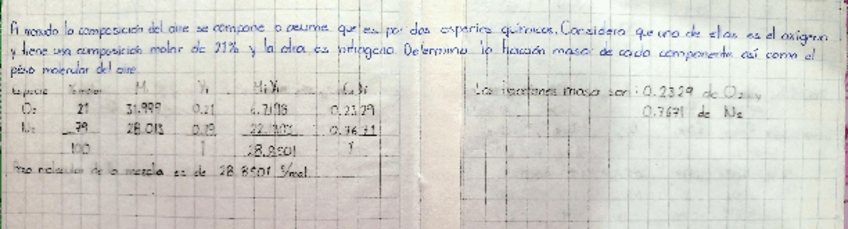 A menudo la composición del aire se compone o asume que es por dos especies químicas. Considera que una de ellas es el oxígeno
y tiene una composición molar de 21% y la otra es nitrógeno. Determina la fracción masa de cada componente así como el
peso molecular del aire
Especie M Yi Mi Yi
O2 21 31.999 0.21 6.7198 0.2329
N2 79 28.013 0.79 0.7671
100 1 28.8501 1
Peso molecular de la mezcla es de 28.8501 g/mol
Las fracciones masa son: 0.2329 de O2 y
0.7671 de N2